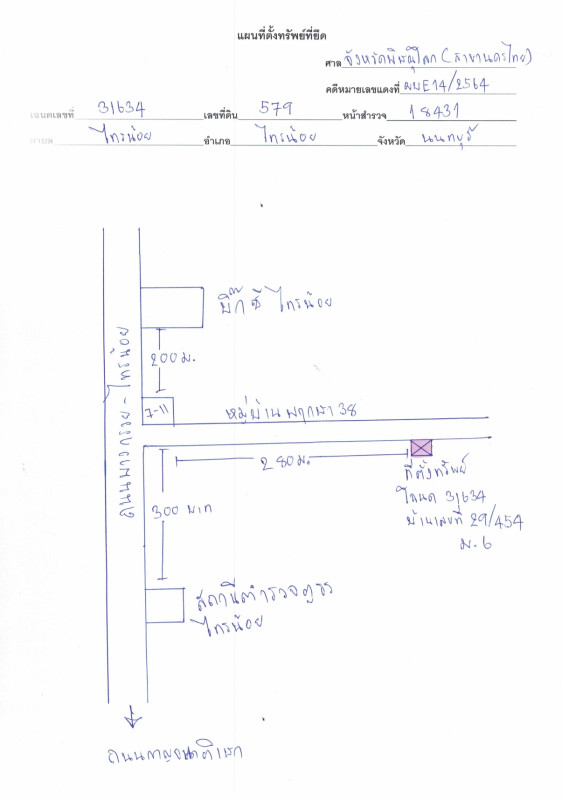 แผนที่ตั้งทรัพย์ที่ยึด
ศาล จังหวัดพิษณุโลก (สาขานครไทย)
คดีหมายเลขแดงที่ ผบE14/2564
โฉนดเลขที่ 31634 เลขที่ดิน 579 หน้าสำรวจ 18431
ตำบล ไทรน้อย อำเภอ ไทรน้อย จังหวัด นนทบุรี
บิ๊กซี ไทรน้อย
200 ม.
ถนนบางกรวย - ไทรน้อย
7-11
หมู่บ้าน พฤกษา 38
280 ม.
ที่ตั้งทรัพย์
โฉนด 31634
บ้านเลขที่ 29/454
ม. 6
300 บาท
สถานีตำรวจภูธร
ไทรน้อย
ถนนกาญจนาภิเษก